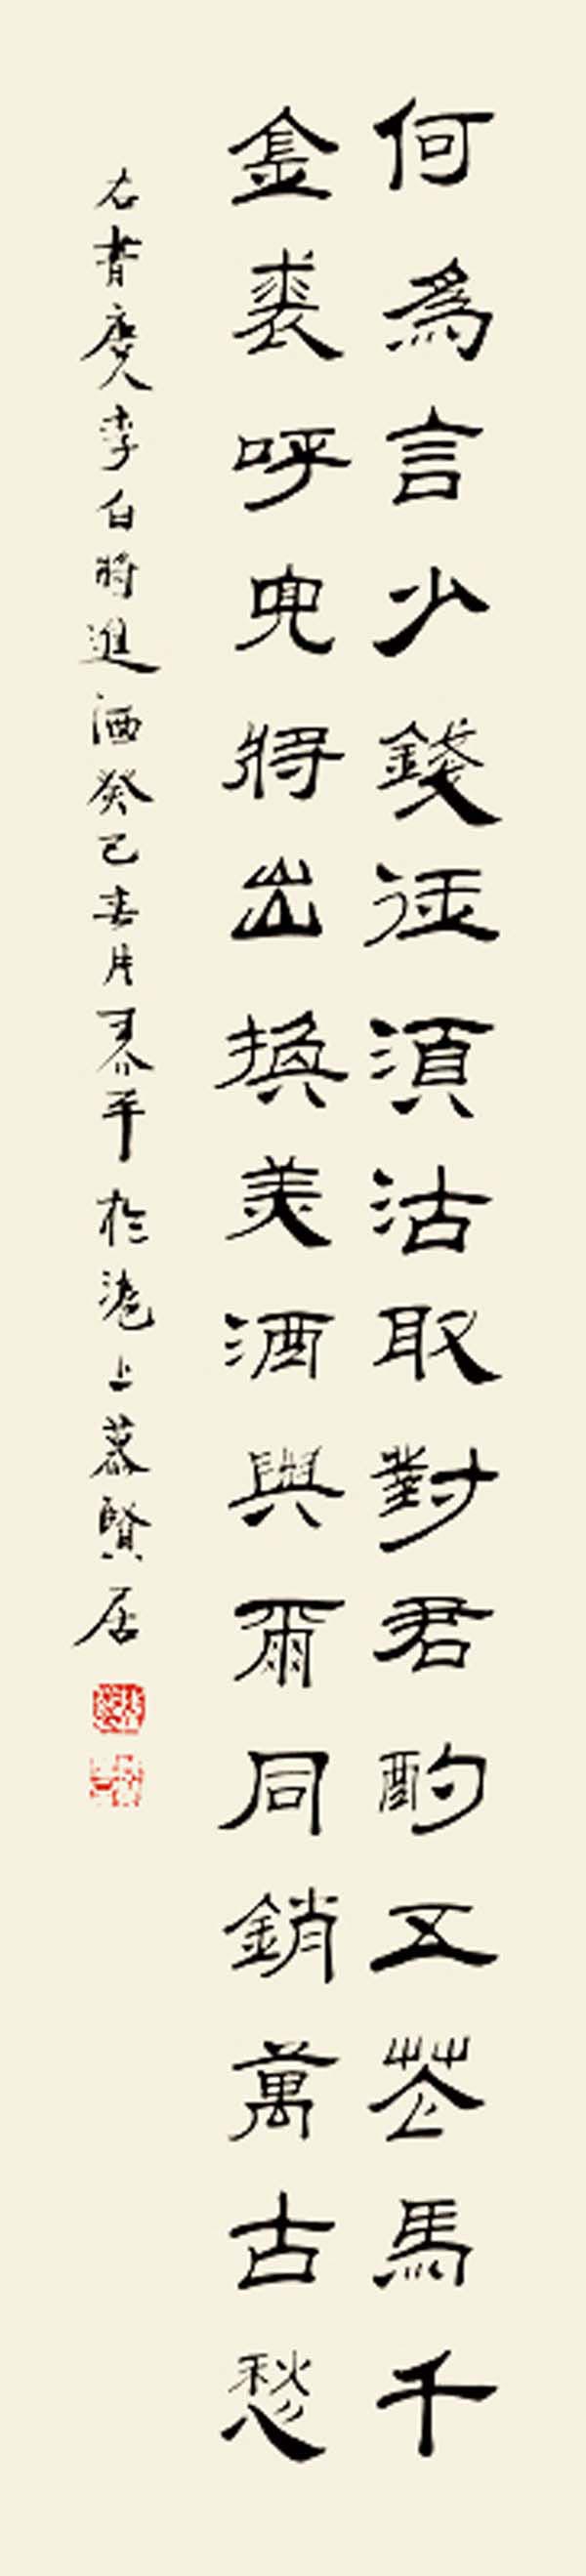 何爲言少錢徑須沽取對君酌五花馬千
金裘呼兒將出換美酒與爾同銷萬古愁
右書唐人李白將進酒癸巳春月平於滬上慕賢居